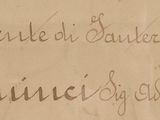 ente di Santer
nunci Sig Ad